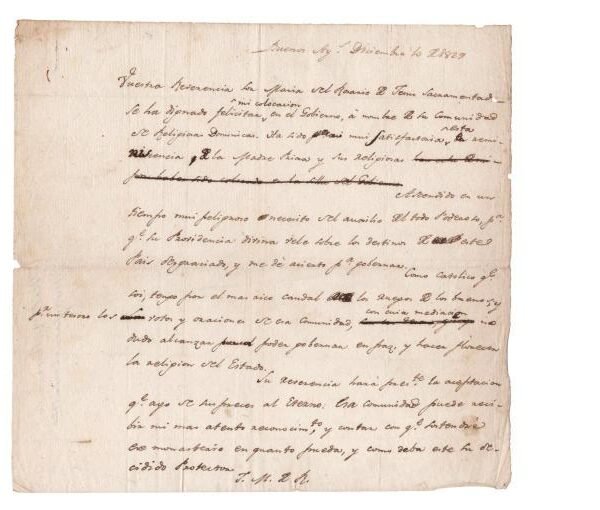 Buenos Ay.s Diciembre 10 de 1829
Vuestra Reverencia Sor Maria del Rosario de Jesus Sacramentad
mi colocacion
se ha dignado felicitar, en el Gobierno, à nombre de su Comunidad
de Religiosas Dominicas. Ha sido mui satisfactoria, esta remi-
niscencia, de la Madre Priora y sus religiosas
Ascendido en un
tiempo mui peligroso necesito del auxilio del todo Poderoso, p.a
q.e su Providencia divina vele sobre los destinos de este
Pais desgraciado, y me dé acierto p.a gobernar.
Como catolico q.e
soi, tengo por el mas rico caudal los ruegos de los buenos; y
con cuia mediacion
p.r un tesoro los votos y oraciones de esa Comunidad, no
dudo alcanzar poder gobernar en paz, y hacer florecer
la religion del Estado.
Su Reverencia hará pres.te la aceptacion
q.e ago de sus preces al Eterno. Esa comunidad puede reci-
bir mi mas atento reconocim.to, y contar con q.e sostendré
ese monasterio en quanto pueda, y como deba este su de-
cidido Protector.
J. M. de R.